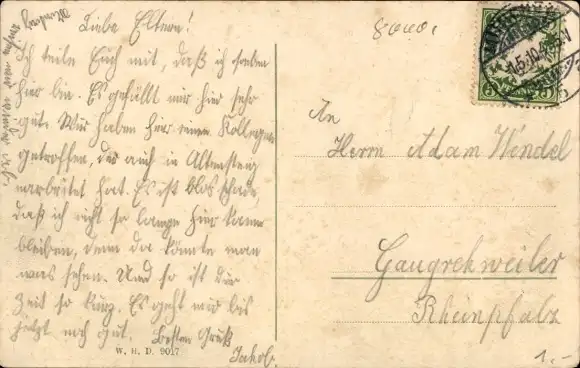 Liebe Eltern!
Ich teile Euch mit, daß ich soeben
hier bin. Es gefällt mir hier sehr
gut. Wir haben hier einen Kollegen
getroffen, der auch in Altensteig
gearbeitet hat. Es ist blos schade,
daß ich nicht so lange hier kann
bleiben, denn da könnte man
was sehen. Und so ist die
Zeit so kurz. Es geht mir bis
jetzt noch gut. Besten Gruß
Jakob.
W. H. D. 9017
An
Herrn Adam Wendel
Gaugrehweiler
Rheinpfalz
1.-